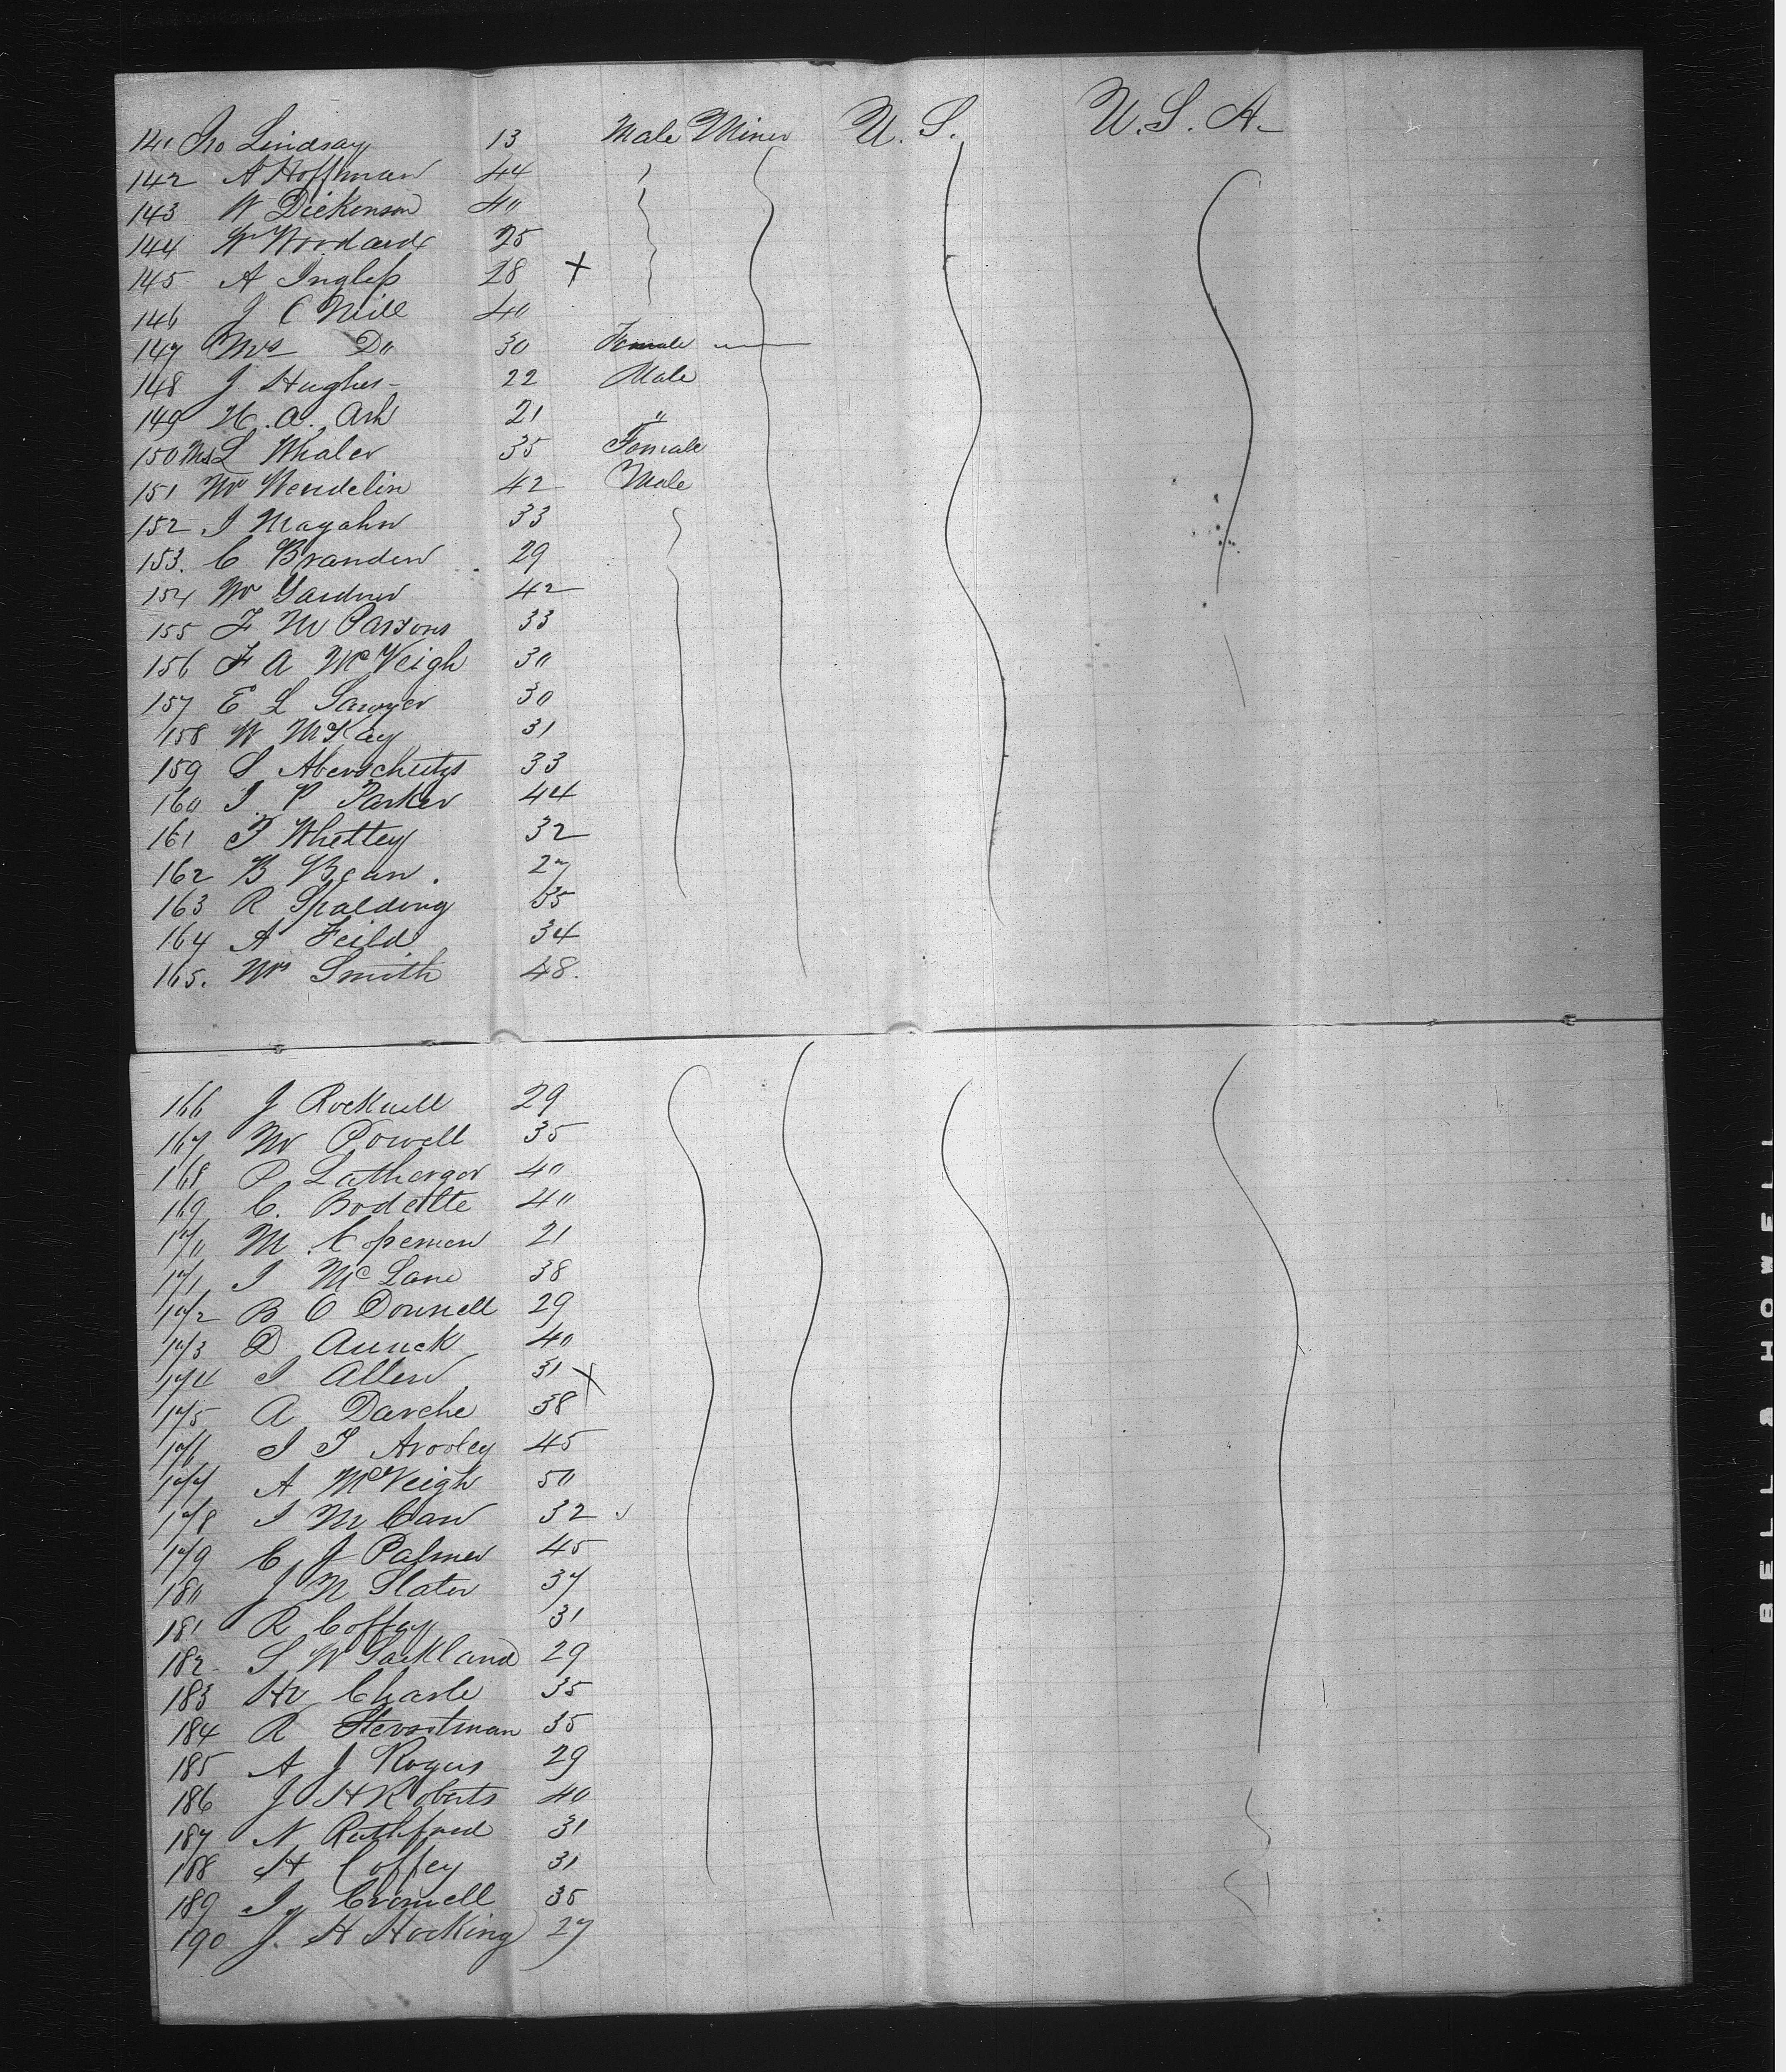 141 Jno Lindsay 13 Male Miner U. S. U. S. A.
142 A Hoffman 44
143 W Dickenson 40
144 W Woodard 25
145 A Ingless 28 X
146 J O Neill 40
147 Mrs Do 30 Female
148 J Hughes 22 Male
149 H. A. Ash 21 "
150 Mrs L Whaler 35 Female
151 Mr Wendelin 42 Male
152 J Magahn 33
153. C Branden 29
154 Mr Gardner 42
155 F M Parsons 33
156 F A McVeigh 30
157 E L Sawyer 30
158 W McKay 31
159 S Aberschutzs 33
160 J P Parker 44
161 T Whettey 32
162 B Bean. 27
163 R Spalding 35
164 A Feild 34
165. Mrs Smith 48.
166 J Rocknell 29
167 Mr Powell 35
168 P Latherger 40
169 C. Bodette 40
170 M Copeman 21
171 J McLane 38
172 B O Donnell 29
173 D Aunck 40
174 J Allen 31 X
175 A Darche 38
176 J T Arooley 45
177 A McVeigh 50
178 J M Caw 32
179 C J Palmer 45
180 J N Slater 37
181 R Coffey 31
182 S W Sackland 29
183 Hr Charle 35
184 R 35
185 A J Rogers 29
186 J H Roberts 40
187 N Ruthfred 31
188 H Coffey 31
189 J Cromell 35
190 J. H Hocking 27
BELL & HOWELL